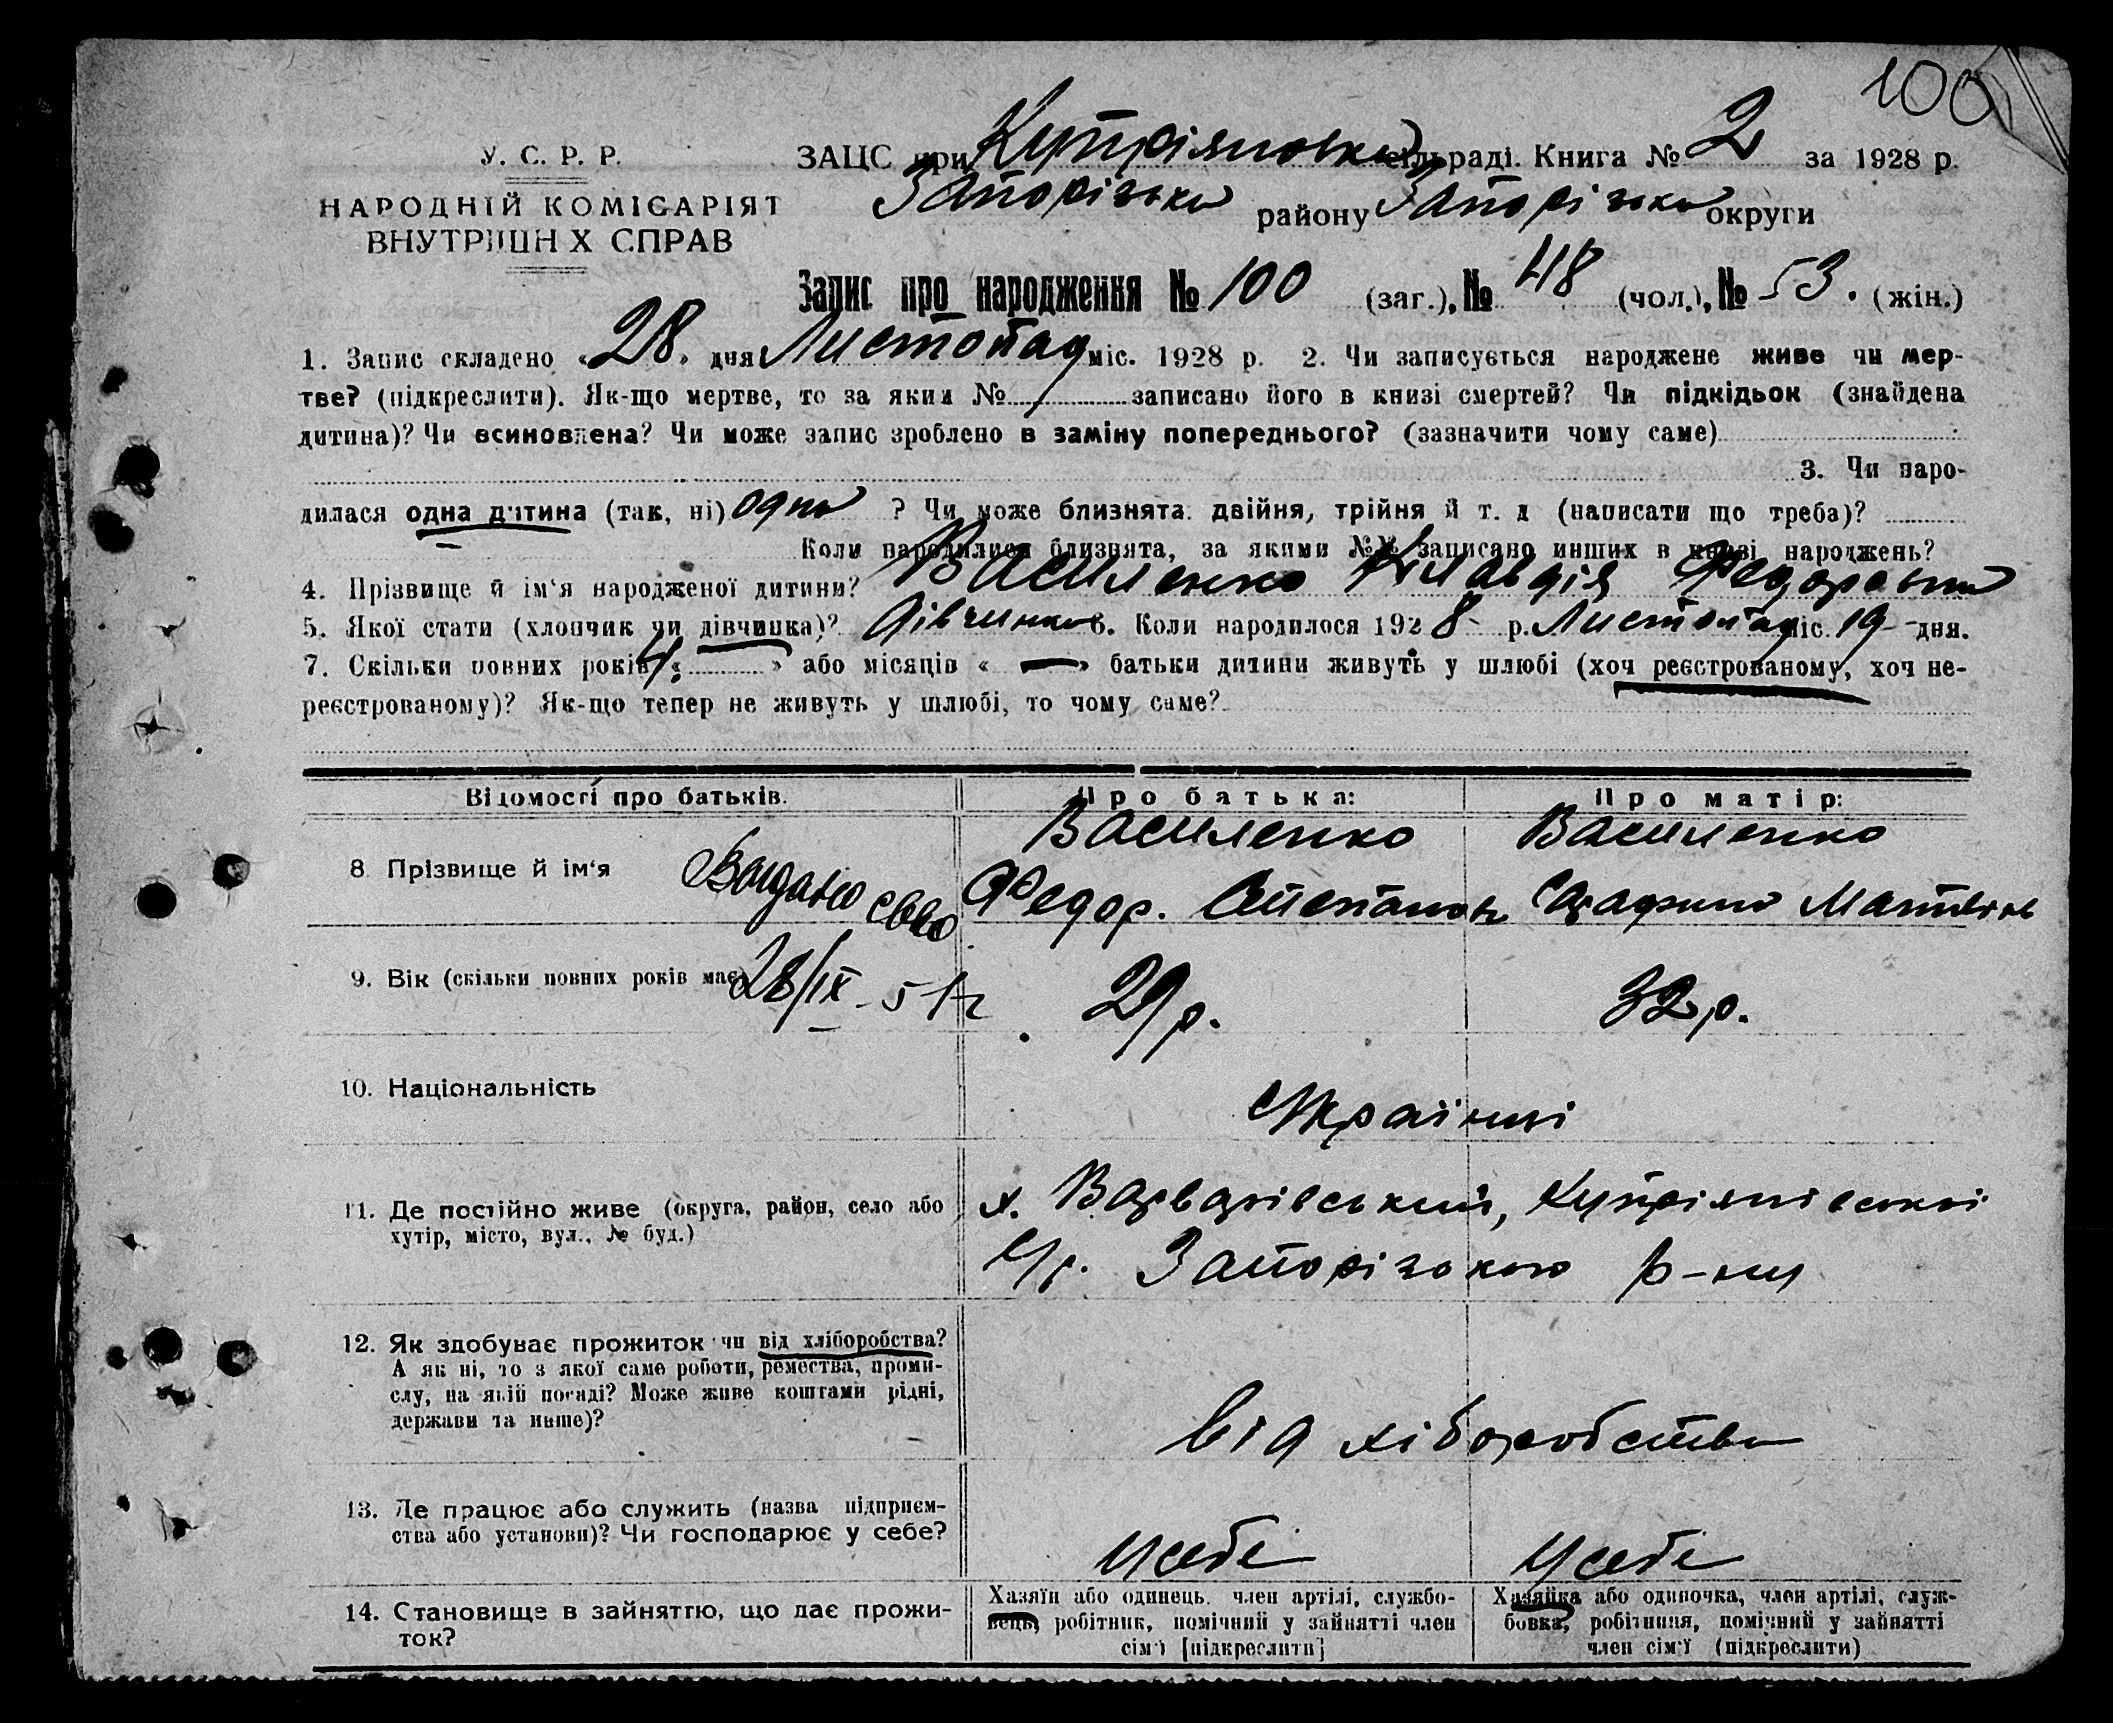 100
У. С. Р. Р.
НАРОДНІЙ КОМІСАРІЯТ
ВНУТРІШН Х СПРАВ
ЗАЦС при Купріяновськ сільраді. Книга № 2 за 1928 р.
Запорізьки району Запорізьки округи
Запис про народження № 100 (заг.), № 48 (чол.), № 53. (жін.)
1. Запис складено «28» дня Листопад міс. 1928 р. 2. Чи записується народжене живе чи мер-
тве? (підкреслити). Як-що мертве, то за яким № записано його в книзі смертей? Чи підкідьок (знайдена
дитина)? Чи всиновлена? Чи може запис зроблено в заміну попереднього? (зазначити чому саме)
3. Чи наро-
дилася одна дитина (так, ні) одна ? Чи може близнята: двійня, трійня й т. д (написати що треба)?
Коли народилися близнята, за якими №№ записано инших в книзі народжень?
4. Прізвище й ім'я народженої дитини? Василенко Клавдія Федоровна
5. Якої стати (хлопчик чи дівчинка)? Дівчинка 6. Коли народилося 1928 р. Листопад міс. 19 дня.
7. Скільки повних років «4» або місяців « — » батьки дитини живуть у шлюбі (хоч реєстрованому, хоч не-
реєстрованому)? Як-що тепер не живуть у шлюбі, то чому саме?
Відомості про батьків.
Про батька:
Про матір:
8. Прізвище й ім'я
Видано свво
28/IX - 51 г
Василенко
Федор. Степанов
Василенко
Мативів
9. Вік (скільки повних років має)
29 р.
32 р.
10. Національність
Українці
11. Де постійно живе (округа, район, село або
хутір, місто, вул., № буд.)
х. Варварівський, Купріянівської
с/р. Запорізького р-ну
12. Як здобуває прожиток чи від хліборобства?
А як ні, то з якої саме роботи, ремества, проми-
слу, на якій посаді? Може живе коштами рідні,
держави та инше)?
від хіборобства
13. Де працює або служить (назва підприєм-
ства або установи)? Чи господарює у себе?
у себе
у себе
14. Становище в зайняттю, що дає прожи-
ток?
Хазяїн або одинець, член артілі, службо-
вець, робітник, помічний у зайнятті член
сім'ї [підкреслити]
Хазяйка або одиночка, член артілі, служ-
бовка, робітниця, помічний у зайнятті
член сім'ї (підкреслити)